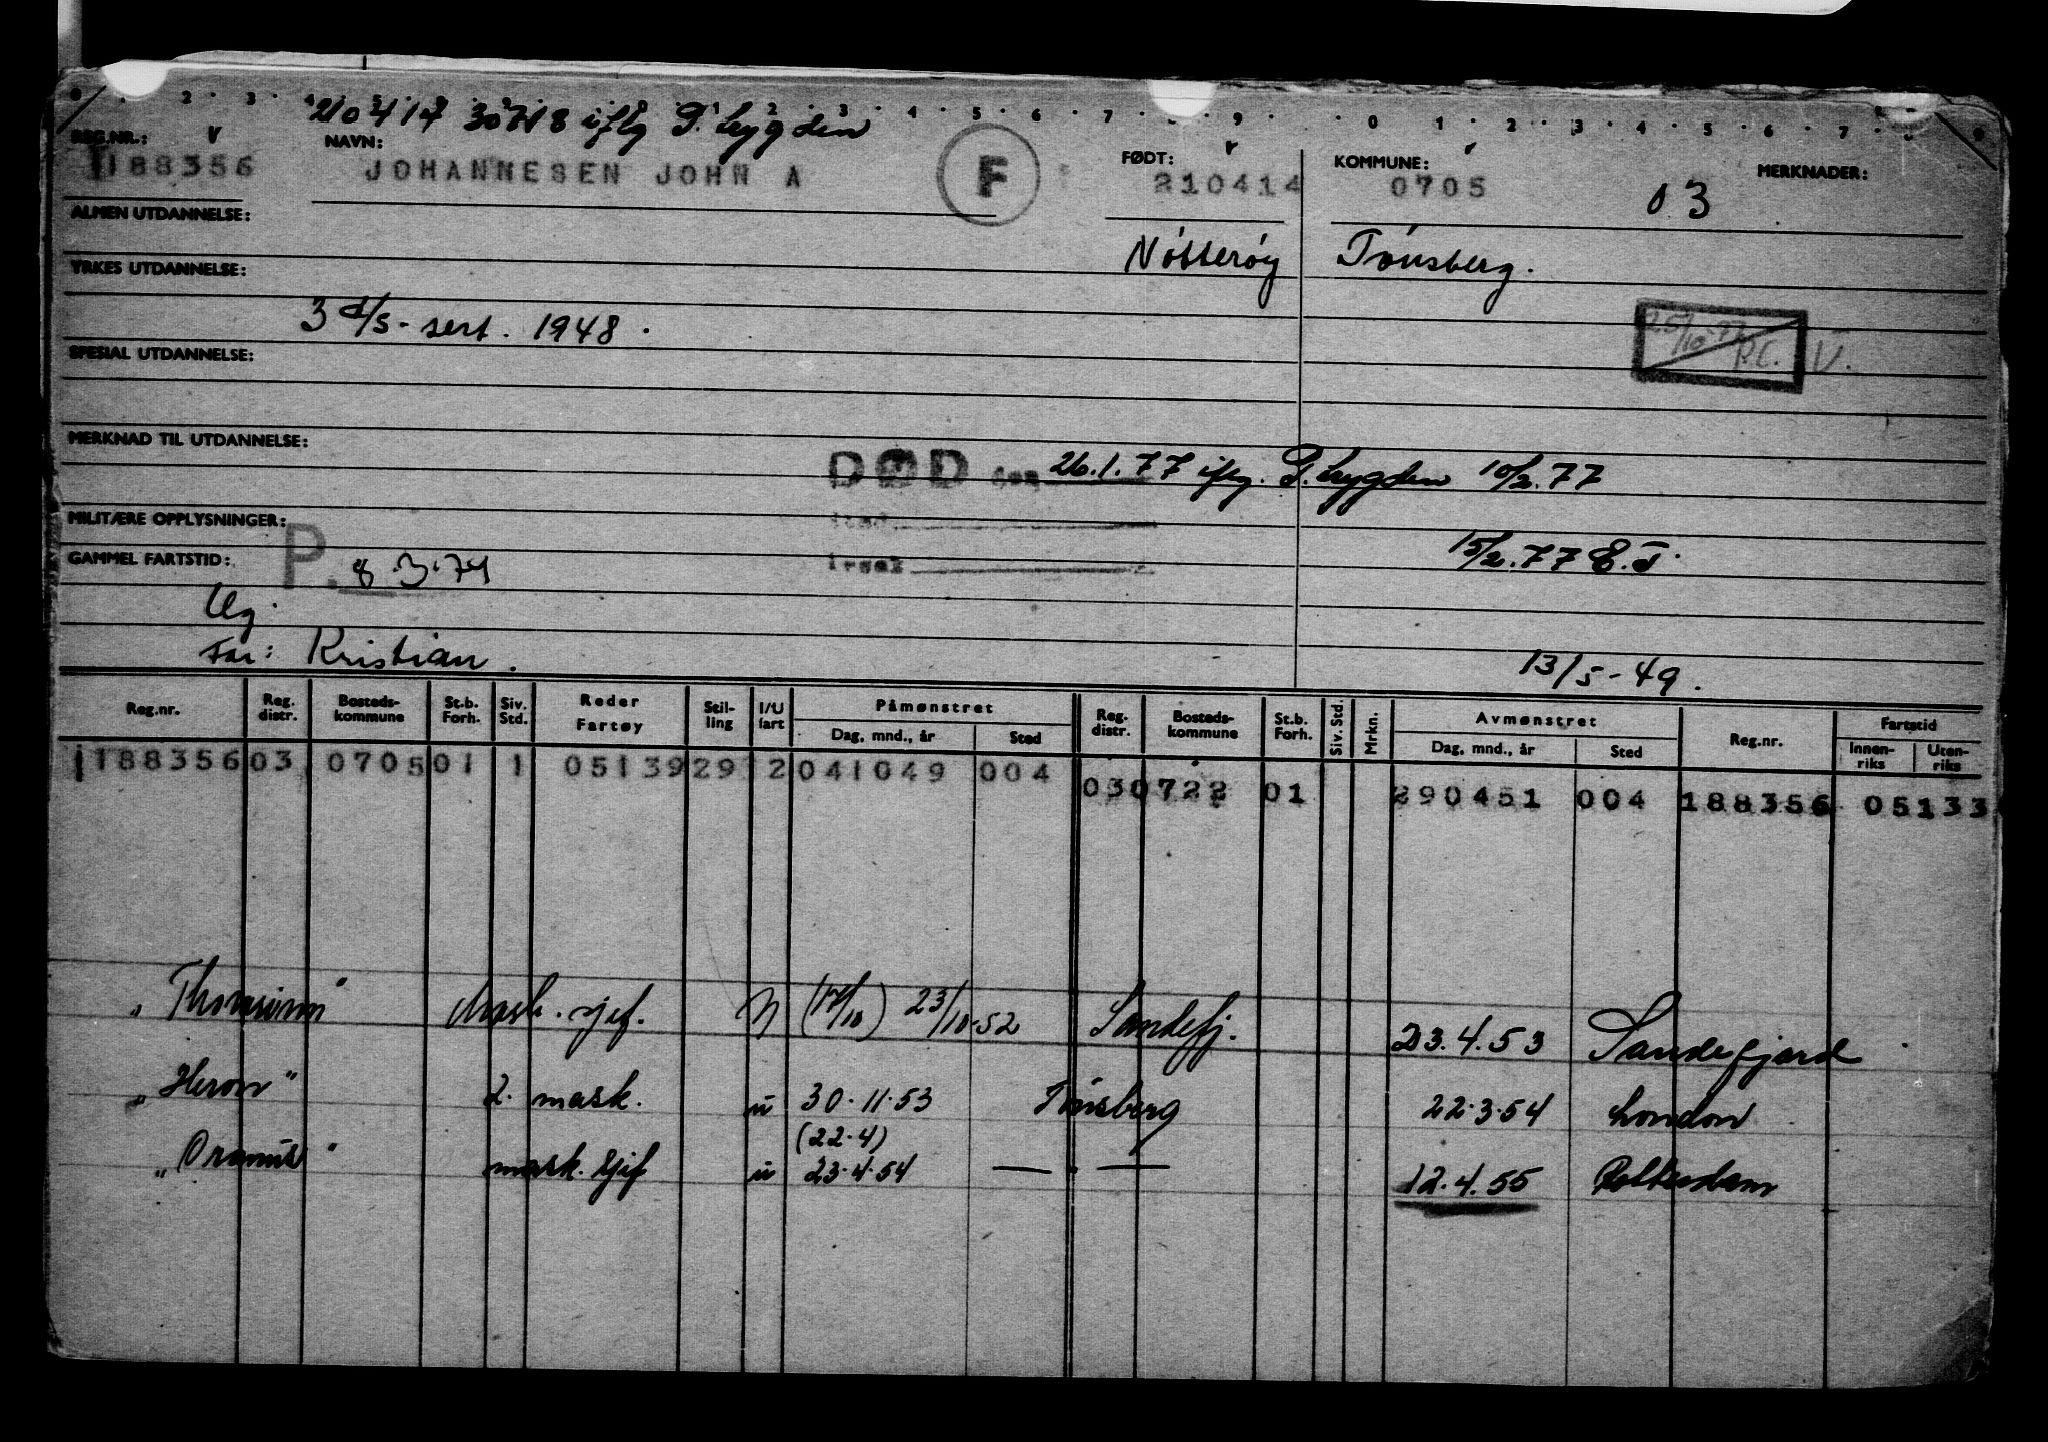 210414 30718 iflg P. trygden
REG.NR.: NAVN: FØDT: KOMMUNE: MERKNADER:
188356 JOHANNESEN JOHN A F 210414 0705 03
ALMEN UTDANNELSE:
Nøtterøy Tønsberg.
YRKES UTDANNELSE:
3 d/s - sert. 1948.
25/10-77 P.C. V.
SPESIAL UTDANNELSE:
MERKNAD TIL UTDANNELSE:
DØD den 26.1.77 iflg. P. trygden 10/2.77
MILITÆRE OPPLYSNINGER:
sted
GAMMEL FARTSTID: P. 8.3.74
årsak 15/2.77 E.T.
Ug.
Far: Kristian. 13/5-49.
Reg.nr. Reg. distr. Bosteds-kommune St.b. Forh. Siv. Std. Reder Fartøy Stil-ling I/U fart Påmønstret Dag, mnd., år Sted Reg. distr. Bosteds-kommune St.b. Forh. Siv. Std. Mrkn. Avmønstret Dag, mnd., år Sted Reg.nr. Fartstid Innen-riks Uten-riks
188356 03 0705 01 1 05139 29 2 041049 004 03 0722 01 290451 004 188356 05133
"Thorsinn" Mask. sjef. N (17/10) 23/10-52 Sandefj. 23.4.53 Sandefjord.
"Heron" 2. mask. u 30.11.53 Tønsberg 22.3.54 London
(22.4)
"Oranus" mask. sjef u 23.4.54 — " — 12.4.55 Rotterdam